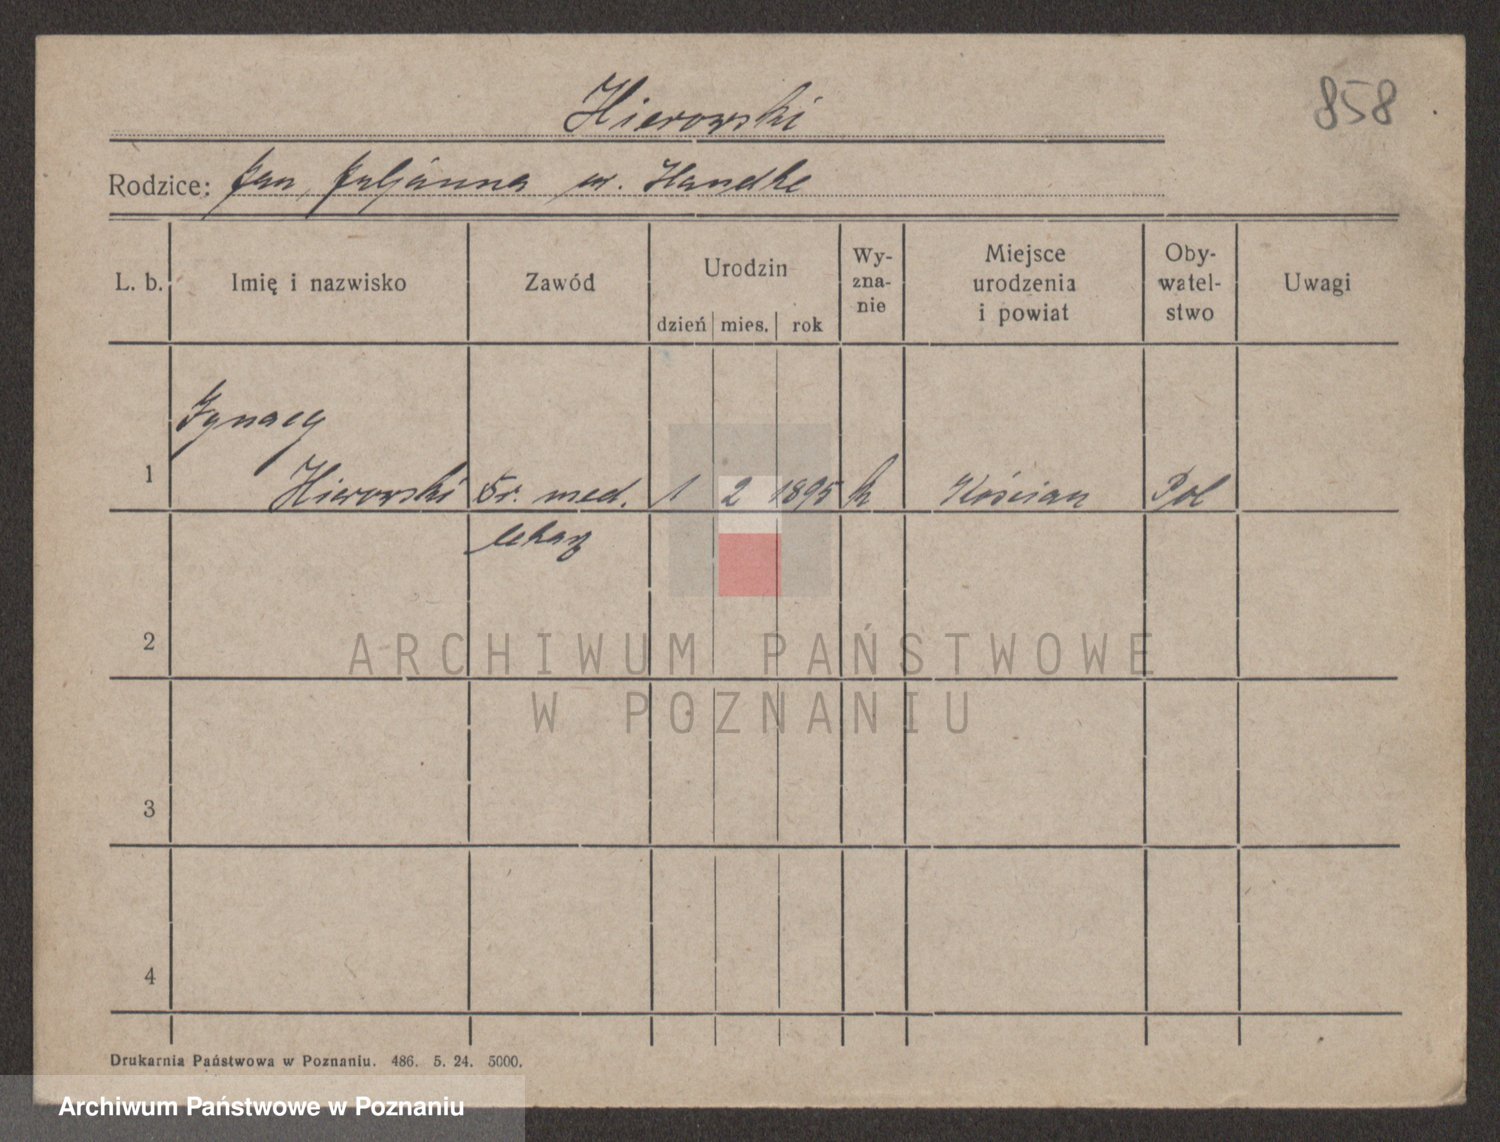 858
Hierowski
Rodzice: Jan, Juljanna ur. Handke
L. b. Imię i nazwisko Zawód Urodzin dzień mies. rok Wy-zna-nie Miejsce urodzenia i powiat Oby-watel-stwo Uwagi
Ignacy
1 Hierowski Dr. med. 1 2 1895 k Kościan Pol
lekarz
2
ARCHIWUM PAŃSTWOWE
W POZNANIU
3
4
Drukarnia Państwowa w Poznaniu. 486. 5. 24. 5000.
Archiwum Państwowe w Poznaniu